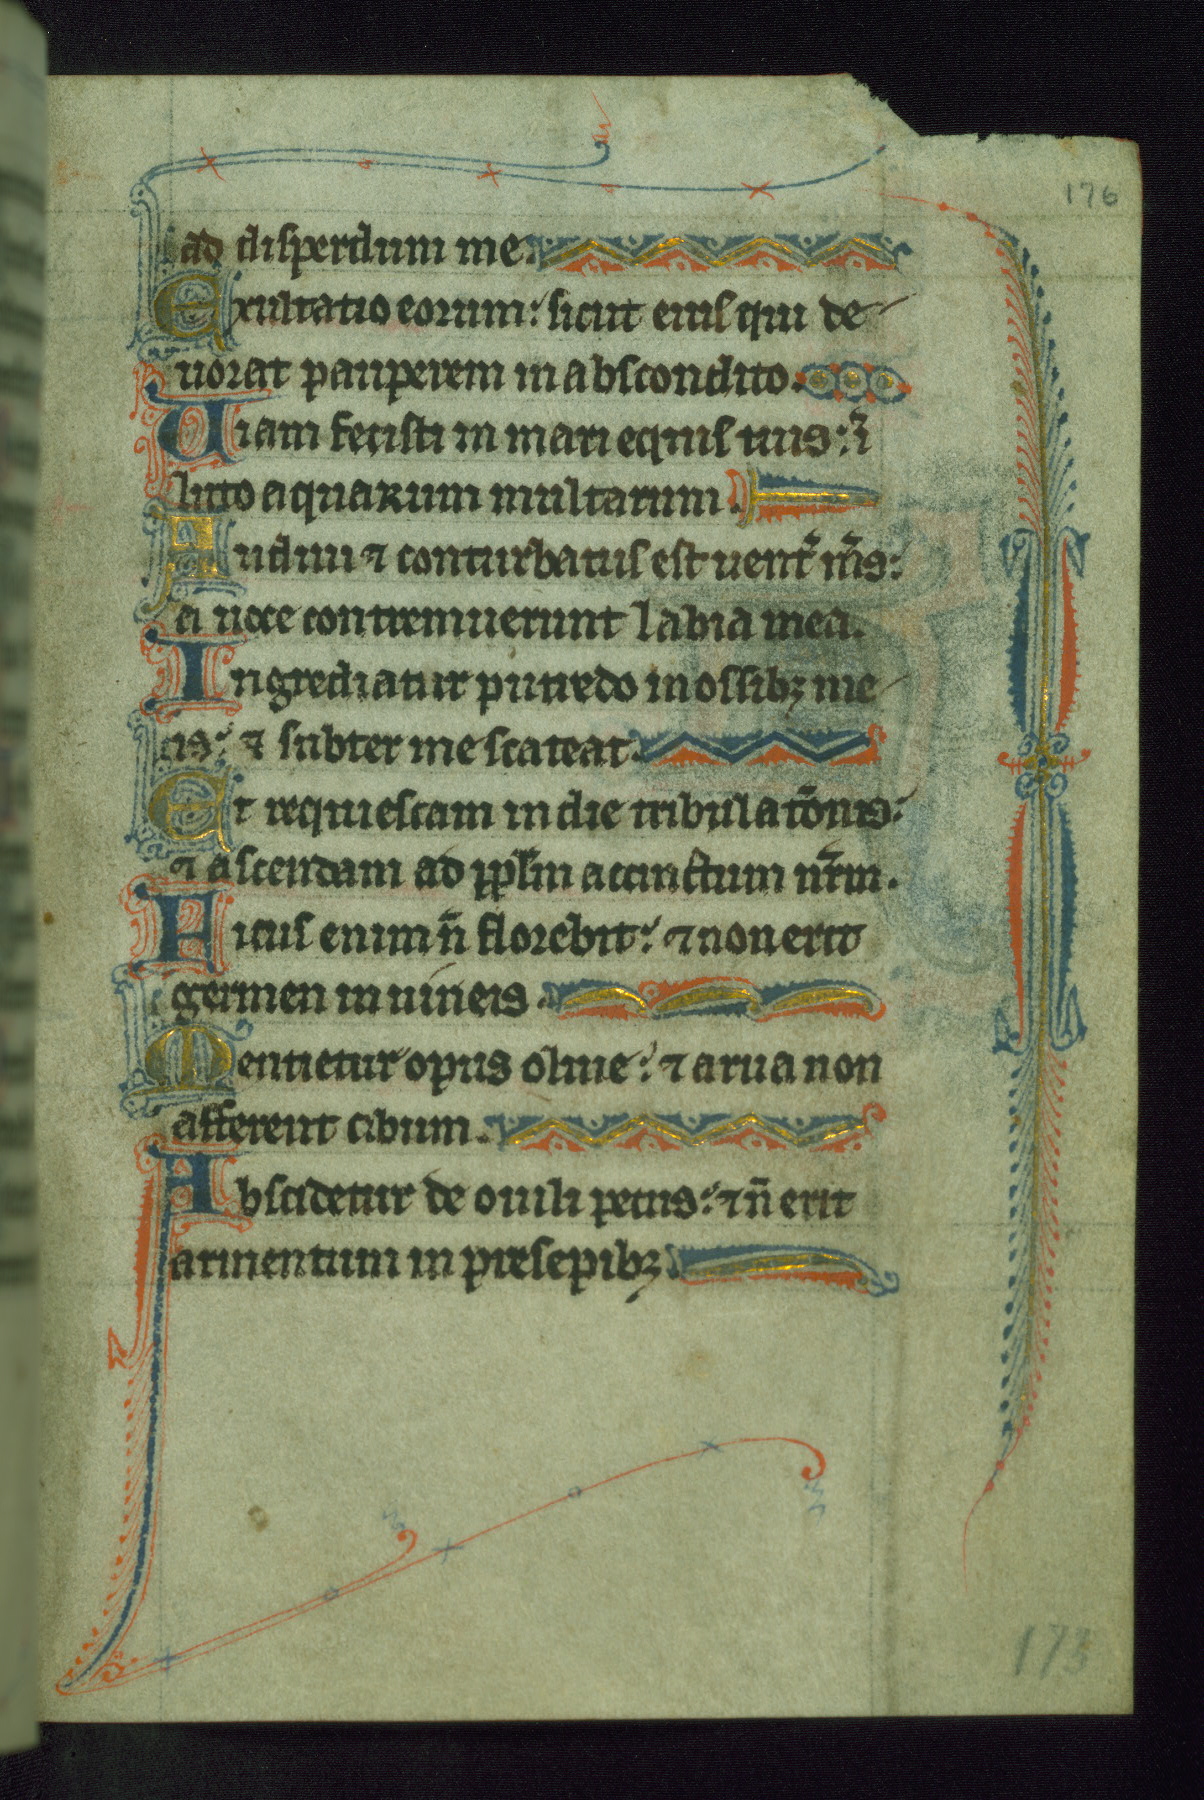 176
ad disperdum me.
Exultatio eorum: sicut eius qui de-
uorat pauperem in abscondito.
Uiam fecisti in mari equis tuis: ĩ
luto aquarum multarum.
Audiui ⁊ conturbatus est uent̃ m̃s:
a uoce contremuerunt labia mea.
Ingrediatur putredo in ossibꝫ me-
is: ⁊ subter me scateat.
Et requiescam in die tribulatõnis:
⁊ ascendam ad pp̃lm accinctum nr̃m.
Ficus enim ñ florebit: ⁊ non erit
germen in uineis.
Mentietur opus oliue: ⁊ arua non
afferent cibum.
Abscidetur de ouili pecus: ⁊ ñ erit
armentum in presepibꝫ.
173